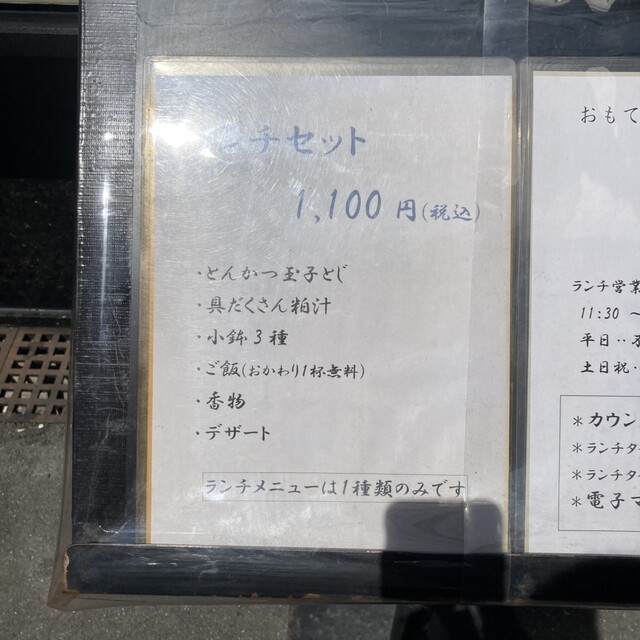 ンチセット
1,100円(税込)
・とんかつ玉子とじ
・具だくさん粕汁
・小鉢3種
・ご飯(おかわり1杯無料)
・香物
・デザート
ランチメニューは1種類のみです
おもて
ランチ営業
11:30 ～
平日‥
土日祝‥
＊カウン
＊ランチタ
＊ランチタ
＊電子マ